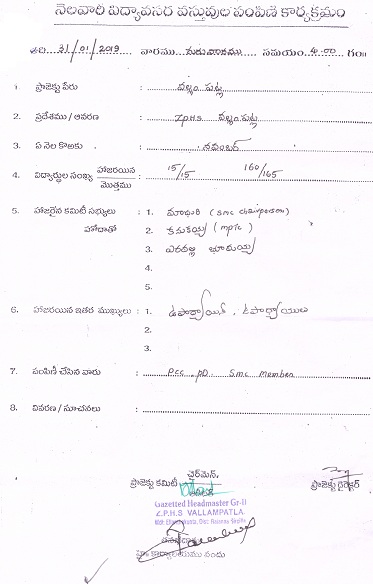 నెలవారీ విద్యావసర వస్తువుల పంపిణీ కార్యక్రమం
తేది 31/01/2019 వారము గురువారము సమయం 4.00 గం॥
1. ప్రాజెక్టు పేరు : వల్లంపట్ల
2. ప్రదేశము / ఆవరణ : ZPHS వల్లంపట్ల
3. ఏ నెల కొఱకు : నవంబర్
4. విద్యార్థుల సంఖ్య హాజరయిన / మొత్తము : 15/15 160/165
5. హాజరైన కమిటీ సభ్యులు : 1. మాధురి (SMC chairperson)
హోదాతో 2. కనకయ్య (MPTC)
3. భూమయ్య
4.
5.
6. హాజరయిన ఇతర ముఖ్యులు : 1. ఉపాధ్యాయులు
2.
3.
7. పంపిణీ చేసిన వారు : PCC, PD. SMC Member
8. వివరణ / సూచనలు :
ఛైర్మెన్,
ప్రాజెక్టు కమిటీ ప్రాజెక్టు డైరెక్టర్
Gazetted Headmaster Gr-II
Z.P.H.S VALLAMPATLA